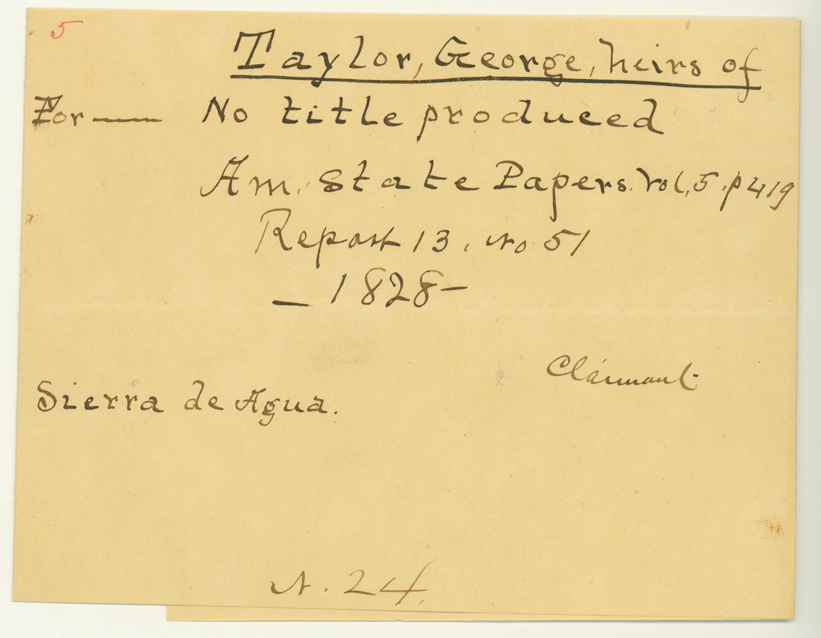 5
Taylor, George, heirs of
For — No title produced
Am. State Papers. Vol, 5. p 419
Report 13, No 51
— 1828 —
Claimant.
Sierra de Agua.
N. 24.